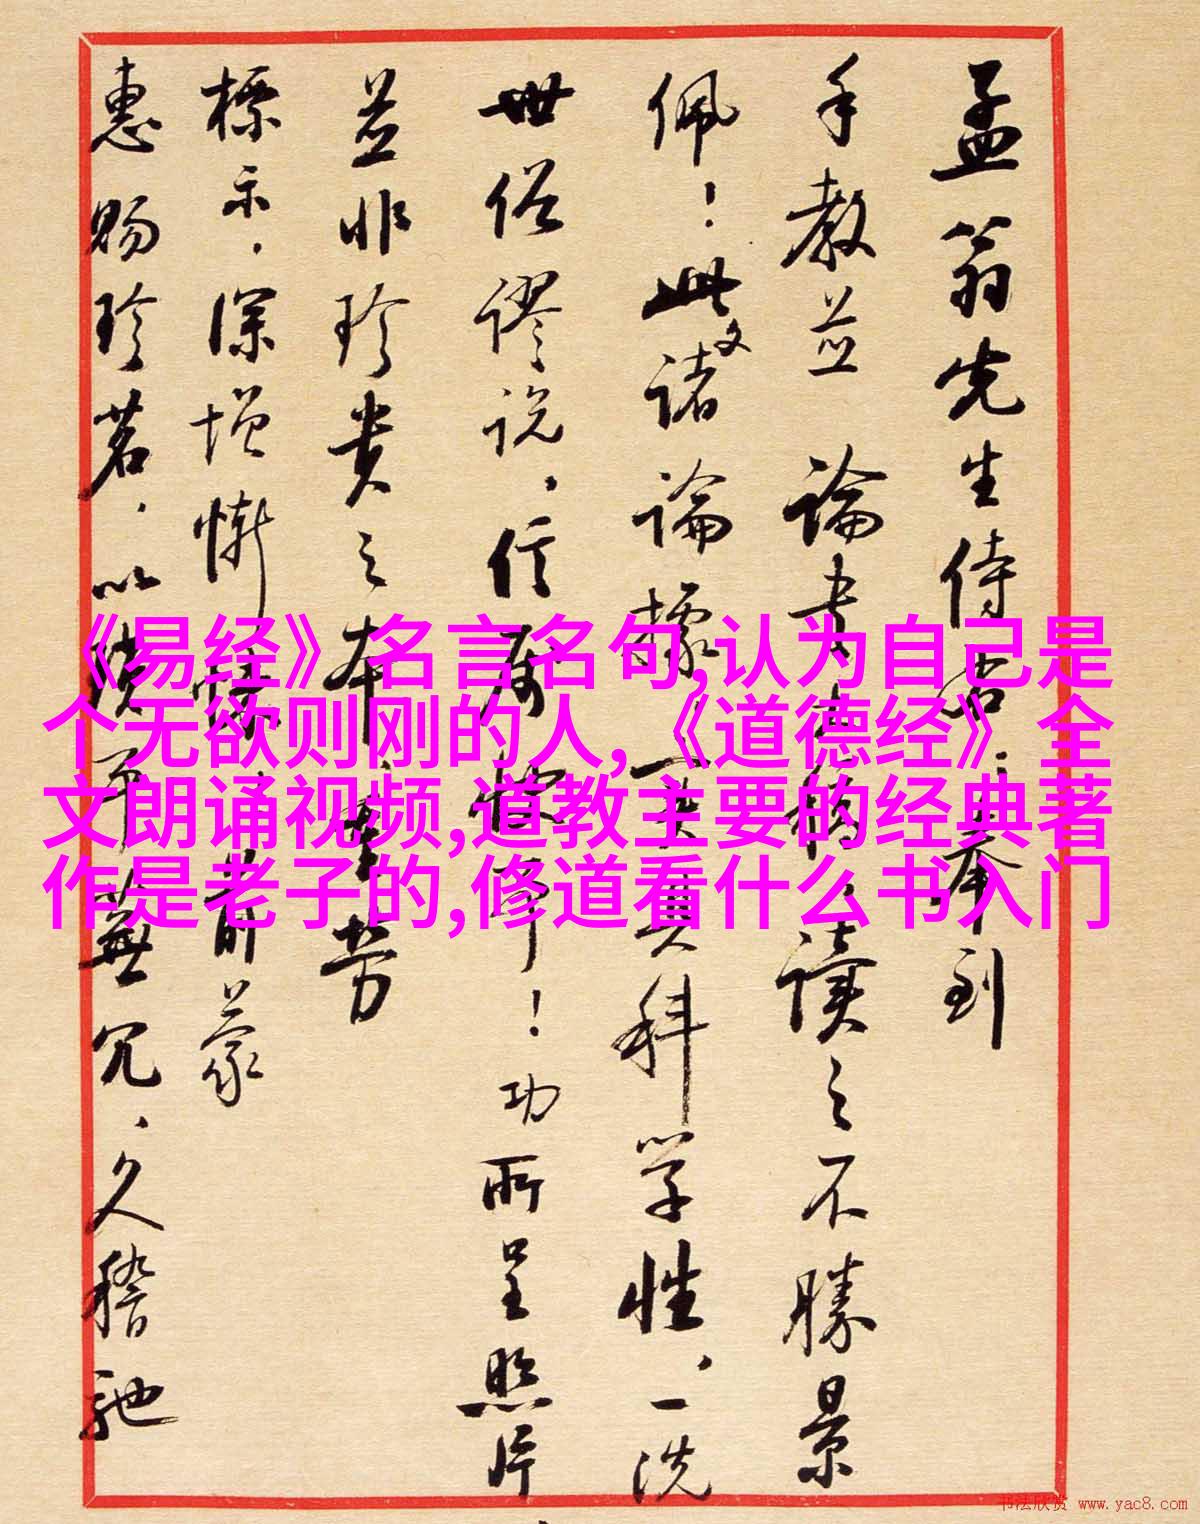 孟翁先生侍右：奉到
手教並 論書大稿，读之不勝景
佩！此文诸論據，真科学性，一洗
世俗谬说，信属快事！功所呈照片
並非珍贵之本，重劳
標示，深增慚，前蒙
惠賜珍茗，以，久稽馳
《易经》名言名句,认为自己是
个无欲则刚的人,《道德经》全
文朗诵视频,道教主要的经典著
作是老子的,修道看什么书入门
书法欣赏 www.yac8.com